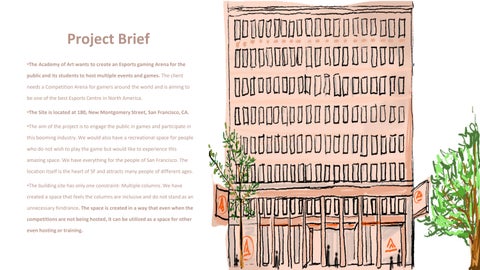 Project Brief
•The Academy of Art wants to create an Esports gaming Arena for the
public and its students to host multiple events and games. The client
needs a Competition Arena for gamers around the world and is aiming to
be one of the best Esports Centre in North America.
•The Site is located at 180, New Montgomery Street, San Francisco, CA.
•The aim of the project is to engage the public in games and participate in
this booming industry. We would also have a recreational space for people
who do not wish to play the game but would like to experience this
amazing space. We have everything for the people of San Francisco. The
location itself is the heart of SF and attracts many people of different ages.
•The building site has only one constraint- Multiple columns. We have
created a space that feels the columns are inclusive and do not stand as an
unnecessary hindrance. The space is created in a way that even when the
competitions are not being hosted, it can be utilized as a space for other
even hosting or training.